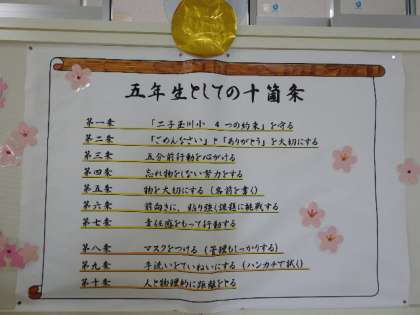 五年生としての十箇条
第一条 「二子玉川小 4つの約束」を守る
第二条 「ごめんなさい」と「ありがとう」を大切にする
第三条 五分前行動を心がける
第四条 忘れ物をしない努力をする
第五条 物を大切にする（名前を書く）
第六条 前向きに、粘り強く課題に挑戦する
第七条 責任感をもって行動する
第八条 マスクをつける（管理もしっかりする）
第九条 手洗いをていねいにする（ハンカチで拭く）
第十条 人と物理的に距離をとる